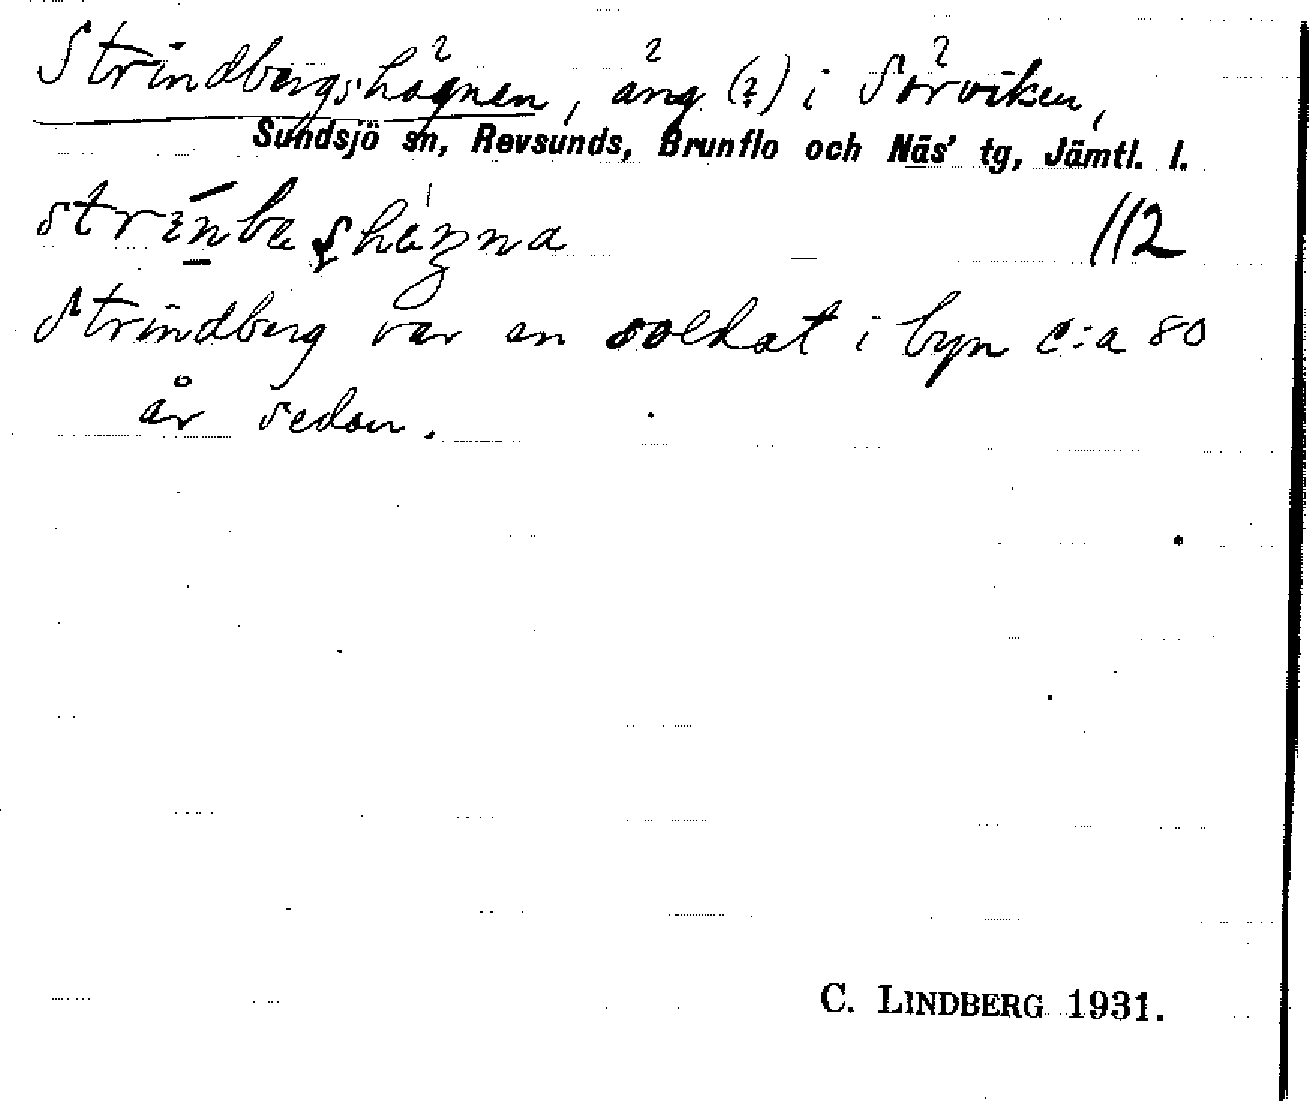 Strindbergshägnen, äng (?) i Sörviken,
Sundsjö sn, Revsunds, Brunflo och Näs' tg, Jämtl. l.
112
Strindberg var en soldat i byn c:a 80
år sedan.
C. LINDBERG 1931.